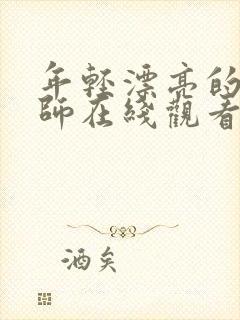 年轻漂亮的
師在綫觀看
酒矣